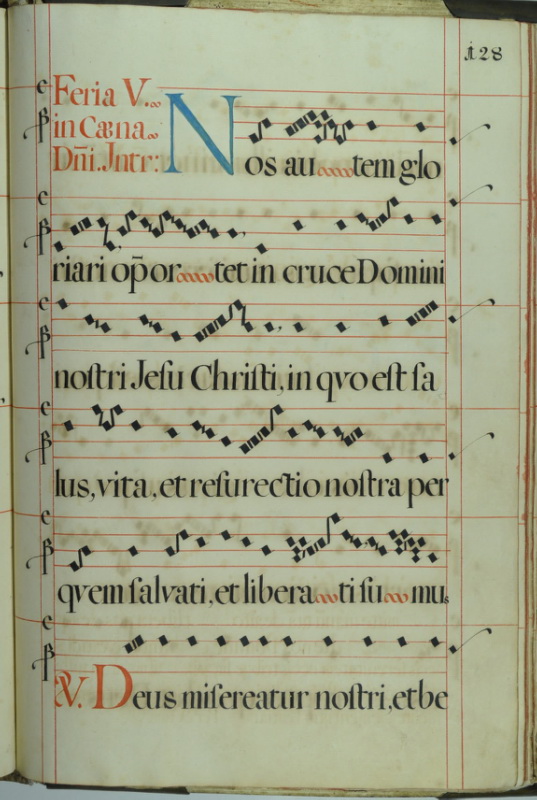 128
Feria V.
in Cæna
Dñi. Intr:
Nos au tem glo
riari op̄or tet in cruce Domini
noſtri Jeſu Chriſti, in qvo eſt ſa
lus, vita, et reſurectio noſtra per
qvem ſalvati, et libera ti ſu mus
V. Deus miſereatur noſtri, et be